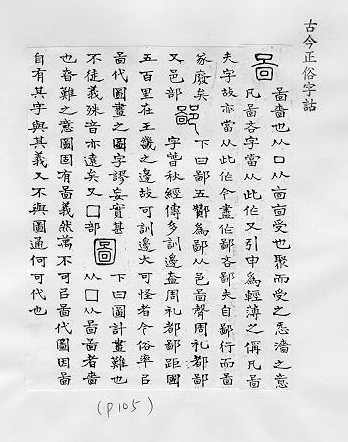 古今正俗字詁
啚嗇也从口从㐭㐭受也聚而受之㤅濇之意
啚
凡啚吝字當从此作又引申為輕薄之偁凡啚
夫字故亦當从此作今盡作鄙吝鄙夫自鄙行而啚
篆廢矣
又邑部
鄙
下曰鄙五酇為鄙从邑啚聲周礼都鄙
字萅秋經傳多訓邊蓋周礼都鄙距國
五百里在王畿之邊故可訓邊大可怪者今俗率㠯
啚代圖畫之圖字謬妄實甚
不徒義殊音亦遠矣又囗部
圖
下曰圖計畫難也
从囗从啚啚者嗇
也嗇難之意圖固有啚義然萬不可㠯啚代圖因啚
自有其字與其義又不與圖通何可代也
(P105)